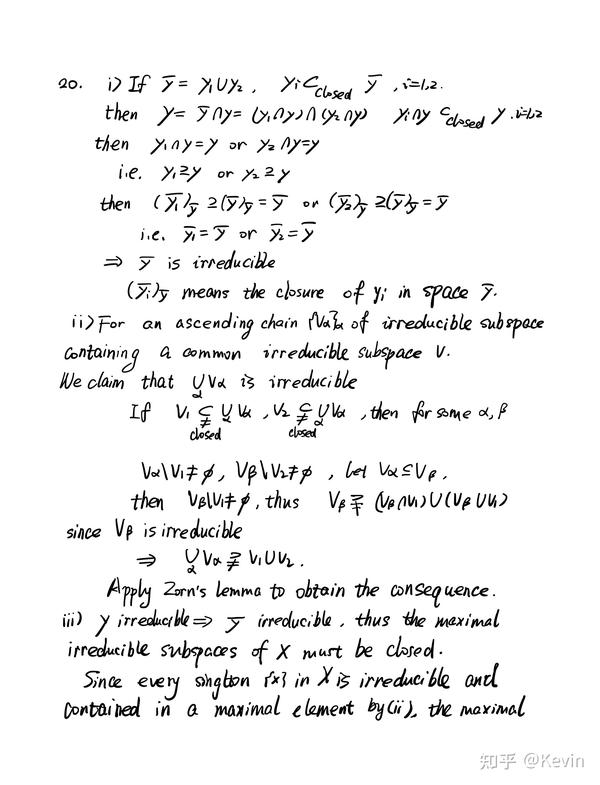 20. i) If ȳ = y₁∪y₂, yᵢ ⊂closed ȳ, i=1,2.
then y = ȳ∩y = (y₁∩y)∩(y₂∩y) yᵢ∩y ⊂closed y. i=1,2
then y₁∩y=y or y₂∩y=y
i.e. y₁⊇y or y₂⊇y
then (ȳ₁)ȳ ⊇(ȳ)ȳ = ȳ or (ȳ₂)ȳ ⊇(ȳ)ȳ = ȳ
i.e. ȳ₁=ȳ or ȳ₂=ȳ
⇒ ȳ is irreducible
(ȳᵢ)ȳ means the closure of yᵢ in space ȳ.
ii) For an ascending chain {Vα}α of irreducible subspace
containing a common irreducible subspace V.
We claim that ∪α Vα is irreducible
If V₁ ⊊closed ∪α Vα, V₂ ⊊closed ∪α Vα, then for some α, β
Vα\V₁≠∅, Vβ\V₂≠∅, let Vα⊆Vβ,
then Vβ\V₁≠∅, thus Vβ ⊋ (Vβ∩V₁)∪(Vβ∪V₂)
since Vβ is irreducible
⇒ ∪α Vα ⊋ V₁∪V₂.
Apply Zorn's lemma to obtain the consequence.
iii) y irreducible ⇒ ȳ irreducible, thus the maximal
irreducible subspaces of X must be closed.
Since every singlton {x} in X is irreducible and
contained in a maximal element by (ii), the maximal
知乎 @Kevin